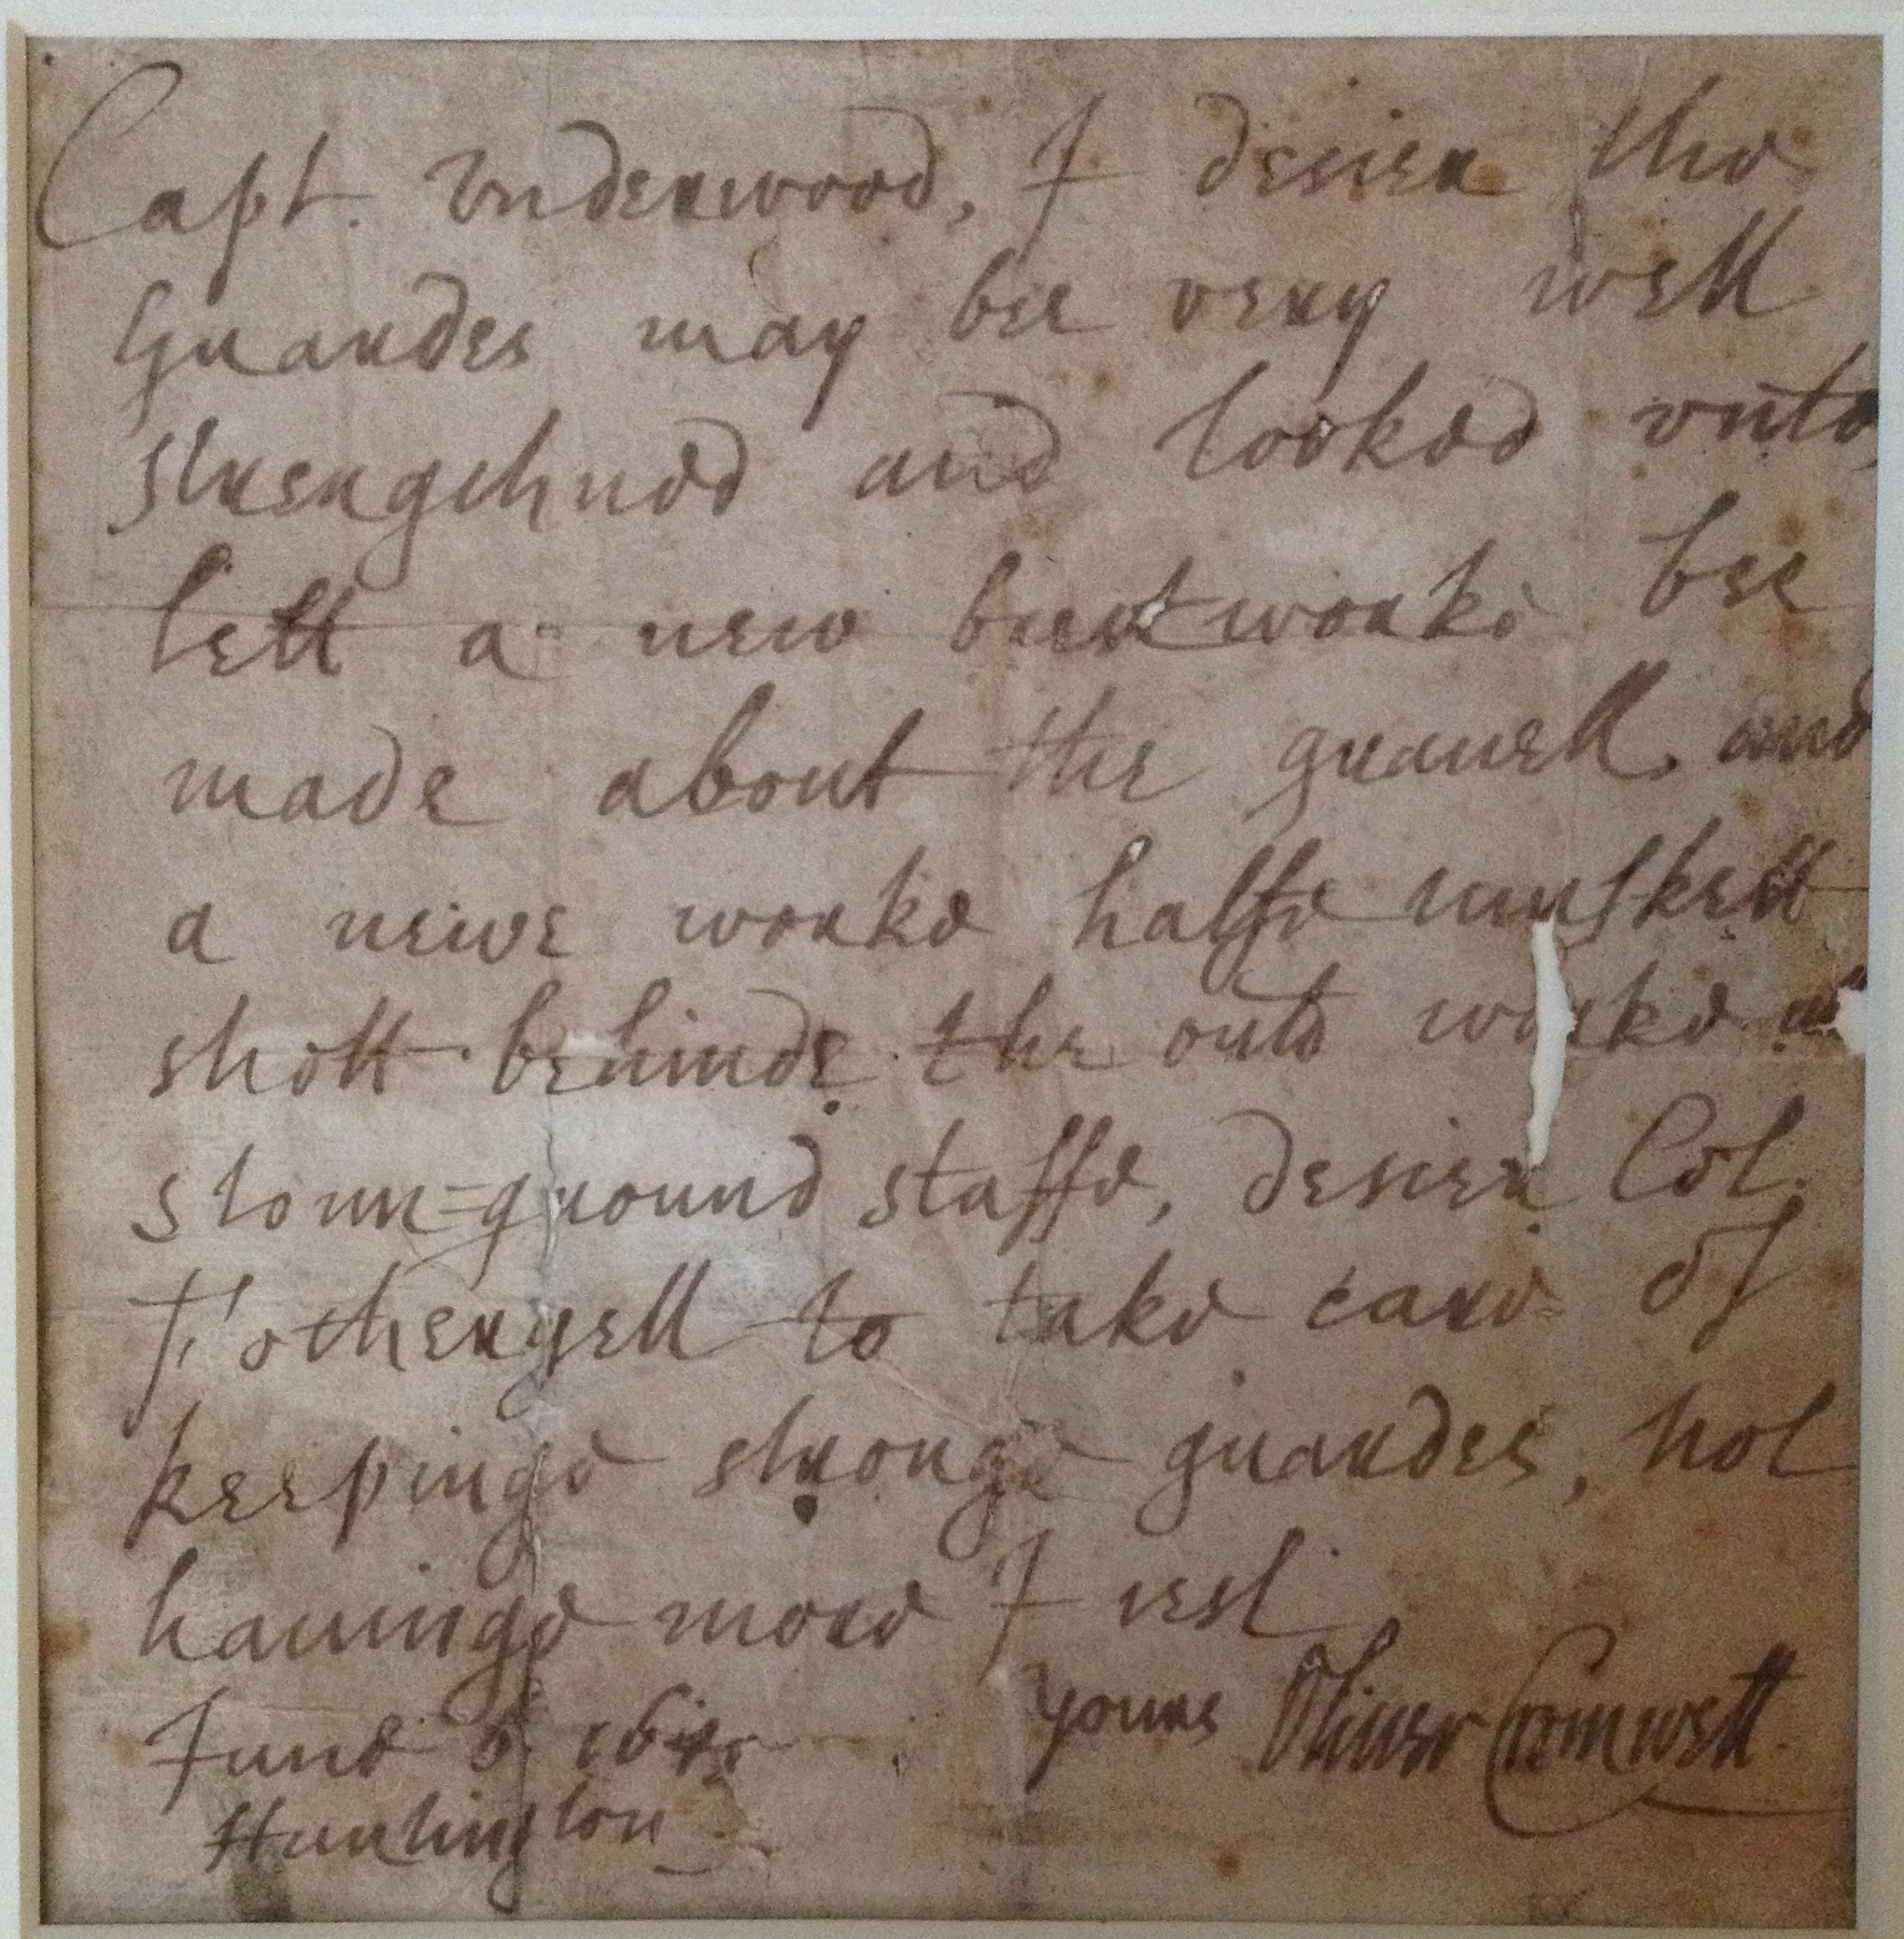 Capt. Vnderwood, I desier the
Guardes may bee very well
strengthned and looked vnto,
lett a new brestworke bee
made about the gravell, and
a newe worke halfe muskett
shott behinde the outo worke att
stonn=ground staffe, desier Col.
Fothergell to take care of
keepinge stronge guardes, not
havinge more I rest
yours Oliver Cromwell
June 6 1645
Huntington